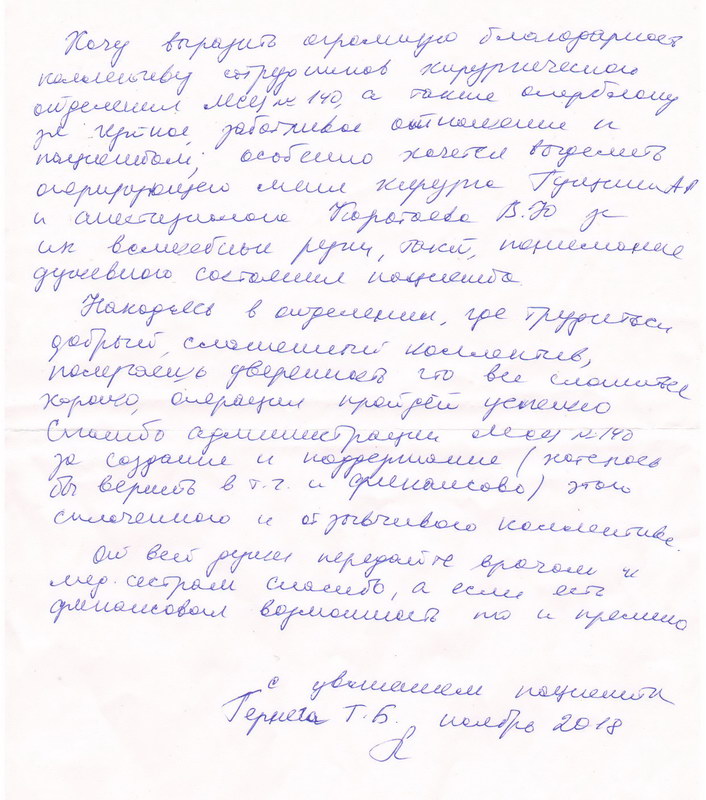 Хочу выразить огромную благодарность
коллективу сотрудников хирургического
отделения МСЧ № 140, а также оперблоку
за чуткое, заботливое отношение к
пациентам, особенно хочется выделить
оперирующего меня хирурга
и анестезиолога Коротаева В.Ю за
их волшебные руки, такт, понимание
душевного состояния пациента.
Находясь в отделении, где трудиться
добрый, слаженный коллектив,
уверенность что все сложится
хорошо, операция пройдет успешно
Спасибо администрации МСЧ № 140
за создание и поддержание (хотелось
бы верить в т.ч. и финансово) этого
сплоченного и отзывчивого коллектива.
От всей души передайте врачам и
мед. сестрам спасибо, а если есть
финансовая возможность то и премию
с уважением пациентка
Т.Б. ноябрь 2018